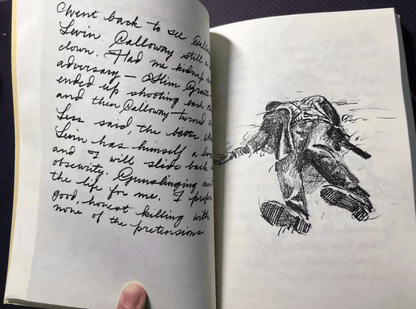 Went back to see Call
Levin. Calloway still a
clown. Had me kidnap
adversary - Slim Grant
ended up shooting each
and then Calloway turned
Less said, the better.
Levin has himself a
and I will slide back
obscurity. Gunslinging
the life for me. I prefer
good, honest killing with
none of the pretensions